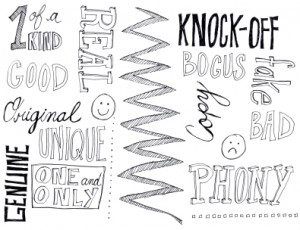 1 of a
KIND
REAL
GOOD
Original
UNIQUE
GENUINE
ONE and
ONLY
KNOCK-OFF
BOGUS
fake
Copy
BAD
PHONY